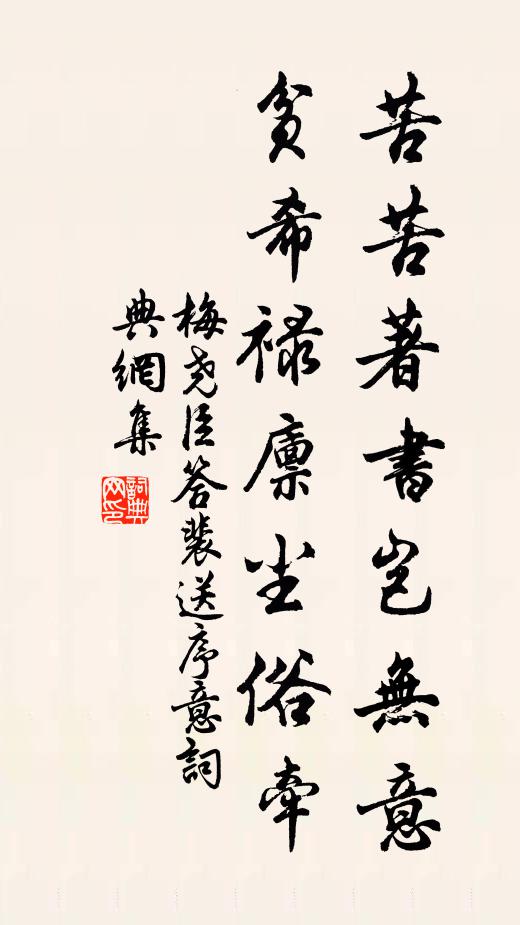 苦苦著書豈無意
貧希祿廩尘俗牽
梅尧臣答裴送序意詞
典網集
詞典網印